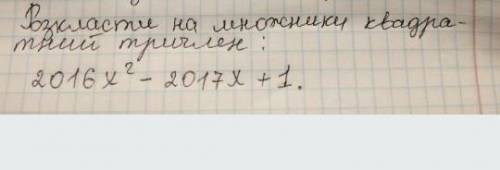 Розкласти на множники квадра-
тний тричлен:
2016x² - 2017x + 1.